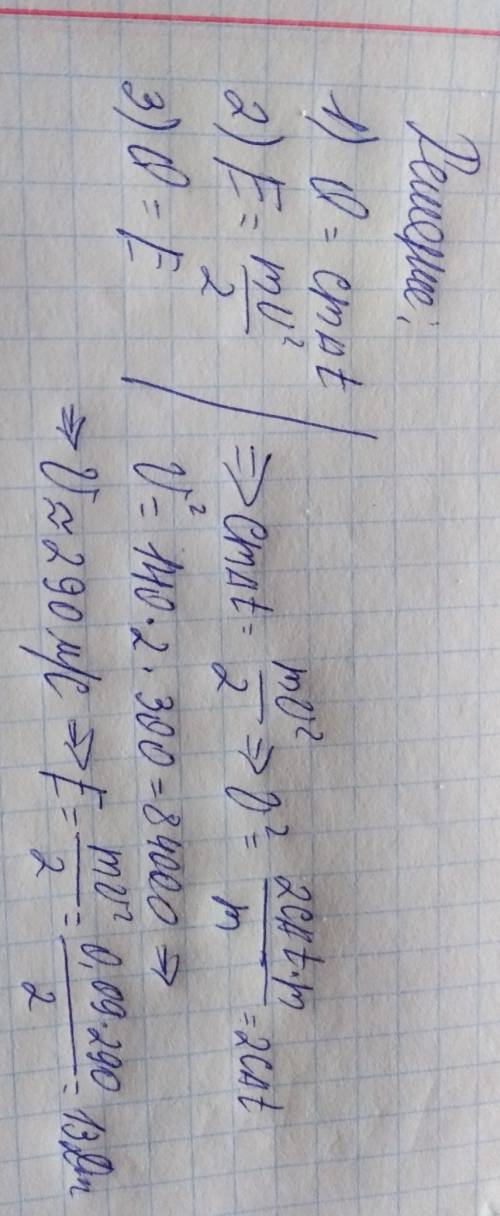 Решение:
1) Q = cmΔt
2) E = mv²/2
3) Q = E
⇒ cmΔt = mv²/2 ⇒ v² = 2cΔt·m/m = 2cΔt
v² = 140·2·300 = 84000 ⇒
⇒ v ≈ 290 м/с ⇒ E = mv²/2 = 0,09·290/2 = 13 Дж